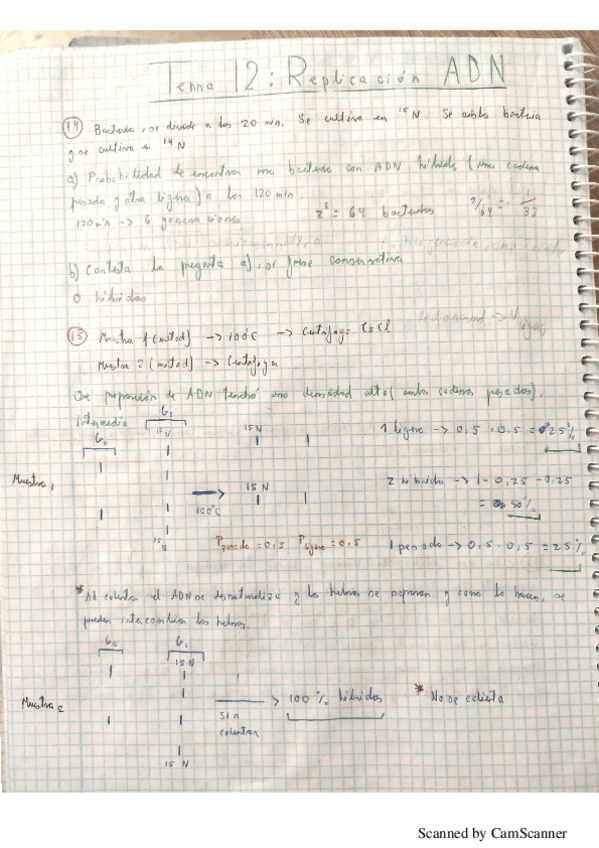 Tema 12: Replicación ADN
14 Bacteria, se divide a los 20 min. Se cultiva en ¹⁵N. Se aísla bacteria
y se cultiva en ¹⁴N
a) Probabilidad de encontrar una bacteria con ADN híbrido (una cadena
pesada y otra ligera) a los 120 min.
120 min -> 6 generaciones 2⁶ = 64 bacterias 2/64 = 1/32
b) Contesta la pregunta a), si fuese conservativa
0 híbridos
15 Muestra 1 (mitad) -> 100°C -> Centrífuga CsCl
Muestra 2 (mitad) -> Centrífuga
Que proporción de ADN tendrá una densidad alta (ambas cadenas pesadas),
intermedia
G₀ G₁
¹⁵N ¹⁵N 1 ligero -> 0,5 · 0,5 = 25%
Muestra 1
100°C ¹⁵N 2 híbrido -> 1 - 0,25 - 0,25
= 50%
¹⁵N Ppesado = 0,5 Pligero = 0,5 1 pesado -> 0,5 · 0,5 = 25%
* Al calentar el ADN se desnaturaliza y las hebras se separan y como lo hacen, se
pueden intercambiar las hebras.
G₀ G₁
¹⁵N
Muestra 2 -> 100% híbridos * No se calienta
sin
calentar
¹⁵N
Scanned by CamScanner